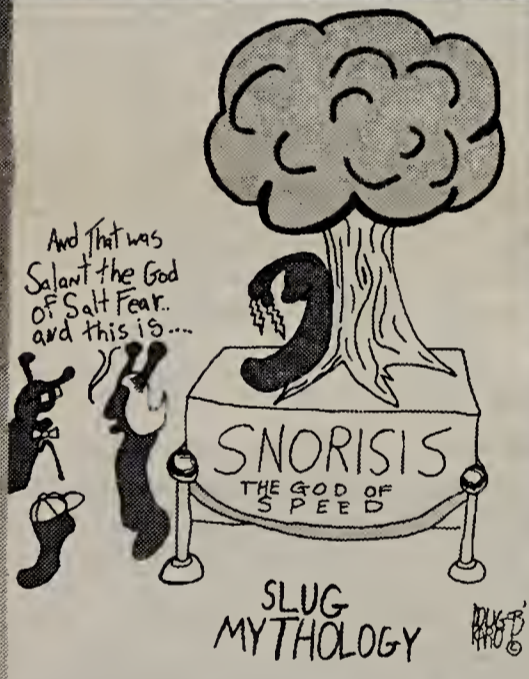 And That was
Salant the God
of Salt Fear..
and this is....
SNORISIS
THE GOD OF
SPEED
SLUG
MYTHOLOGY
©